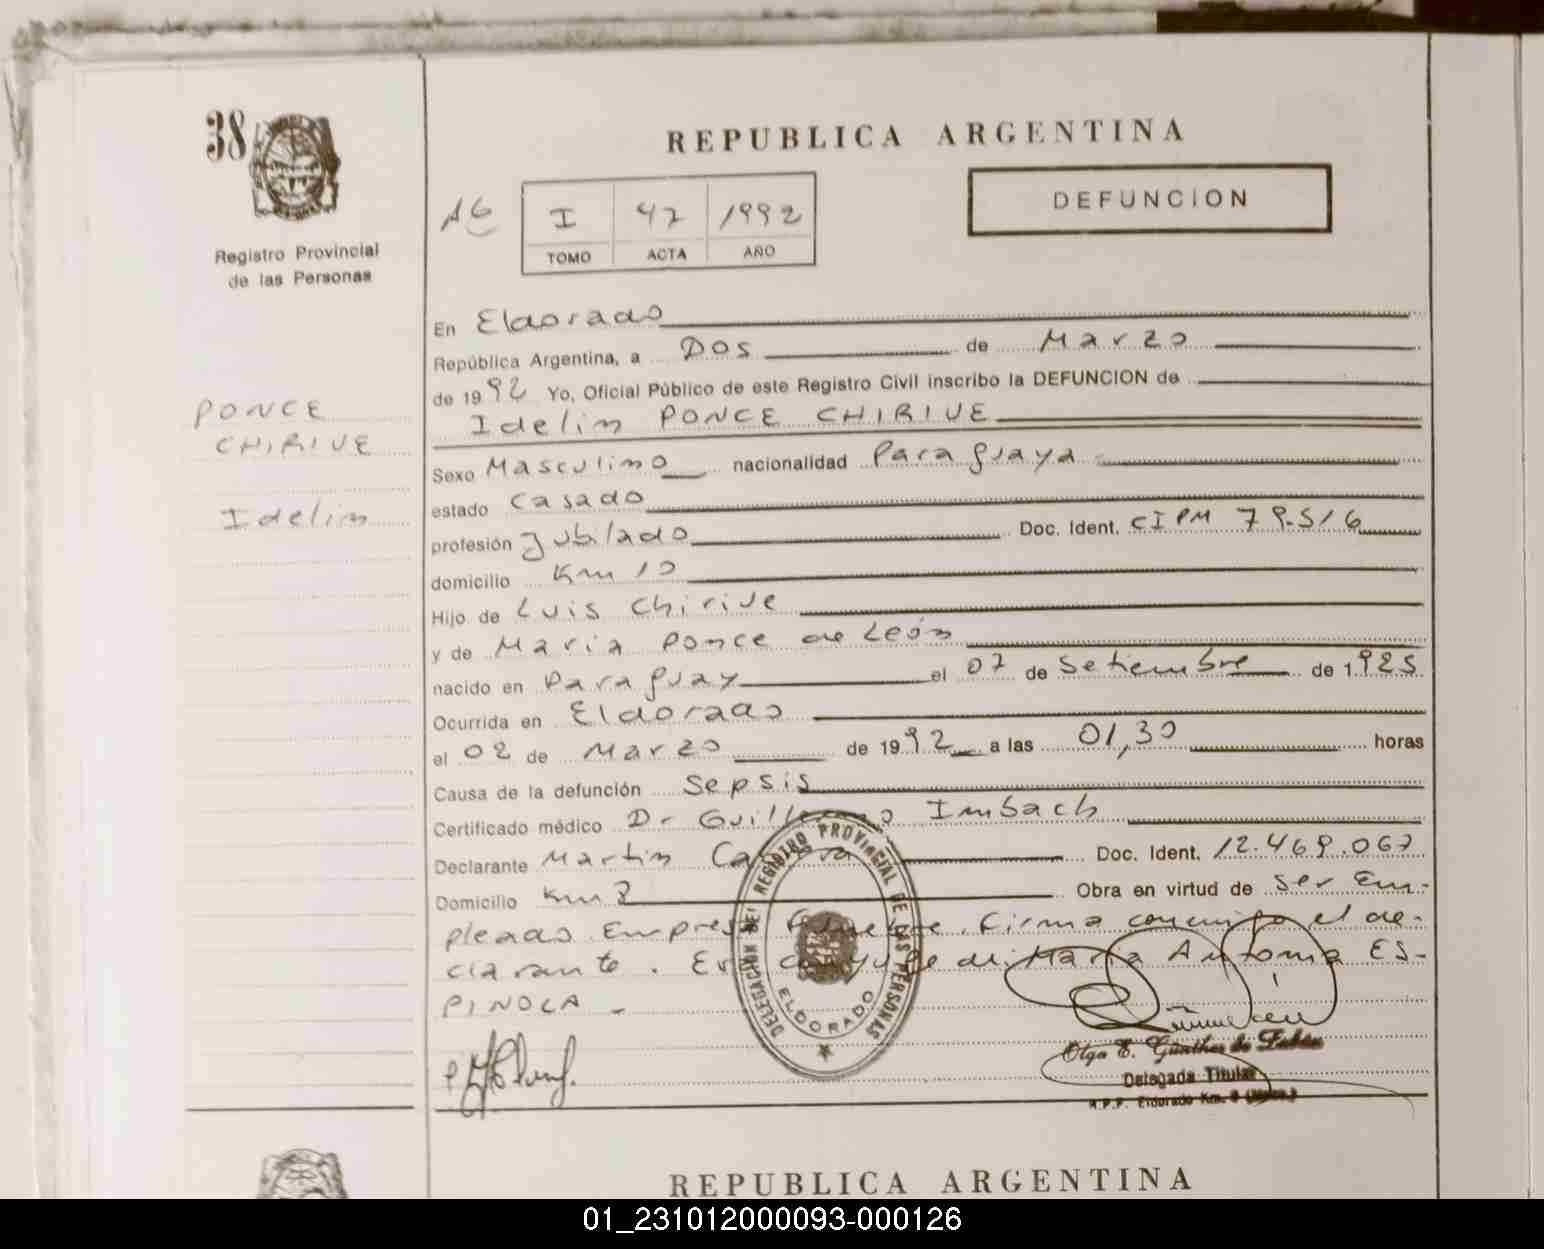 38
REPUBLICA ARGENTINA
DEFUNCION
AG
I 47 1992
TOMO ACTA AÑO
Registro Provincial
de las Personas
PONCE
CHIRIVE
Idelin
En Eldorado
República Argentina, a Dos de Marzo
de 1992 Yo, Oficial Público de este Registro Civil inscribo la DEFUNCION de
Idelin PONCE CHIRIVE
Sexo Masculino nacionalidad Paraguaya
estado Casado
profesión Jubilado Doc. Ident. CIPM 79.516
domicilio Km 10
Hijo de Luis Chirive
y de Maria Ponce de León
nacido en Paraguay el 07 de Setiembre de 1925
Ocurrida en Eldorado
el 02 de Marzo de 1992 a las 01,30 horas
Causa de la defunción Sepsis
Certificado médico Dr Guillermo Imbach
Declarante Martin Doc. Ident. 12.469.067
Domicilio Km Obra en virtud de ser Em-
pleado Empresa Funebre. Firma conmigo el de-
clarante. Era conyuge de Maria Antonia ES-
PINOLA -
DELEGACION DEL REGISTRO PROVINCIAL DE LAS PERSONAS
ELDORADO
Olga E. Günther de
Delegada Titular
R.P.P. Eldorado Km. 9
REPUBLICA ARGENTINA
01_231012000093-000126